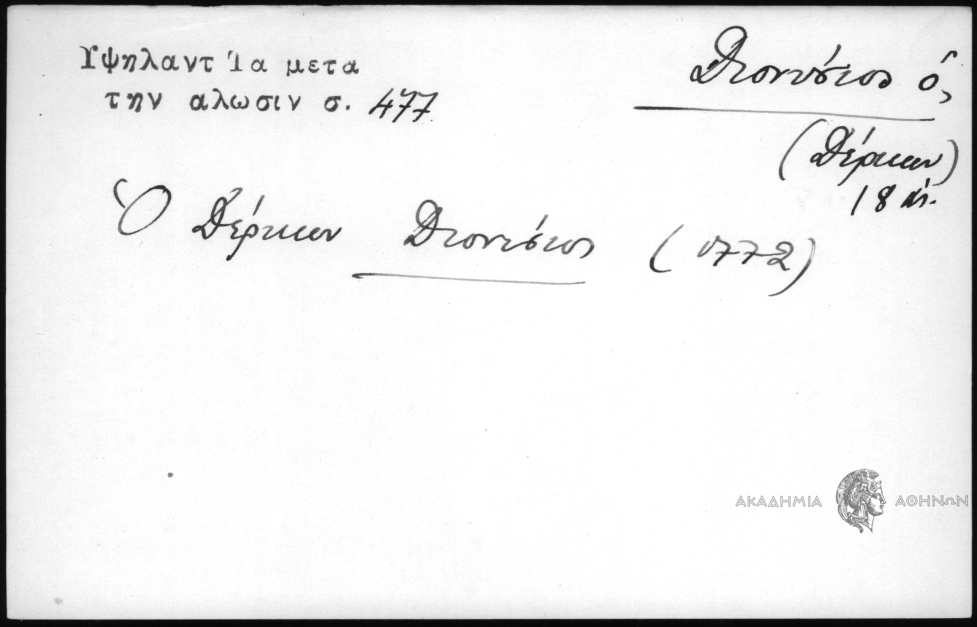 Υψηλαντ Ία μετα
την αλωσιν σ. 477
Διονύσιος ὁ,
(Δέρκων)
18 αι.
Ὁ Δέρκων Διονύσιος (1772)
ΑΚΑΔΗΜΙΑ ΑΘΗΝΩΝ